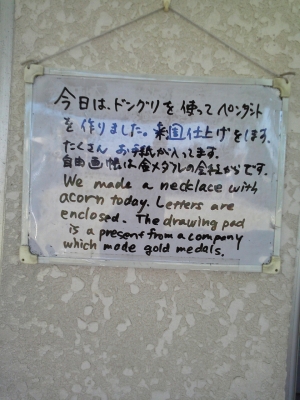 今日は、ドングリを使ってペンダント
を作りました。楽園仕上げをします。
たくさん お手紙が入ってます。
自由画帳は金メダルの会社からです。
We made a necklace with
acorn today. Letters are
enclosed. The drawing pad
is a present from a company
which made gold medals.